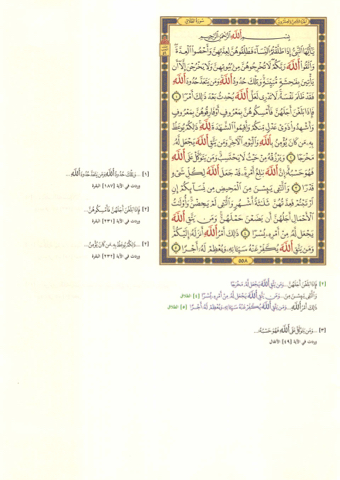 سورة الطلاق
بسم الله الرحمن الرحيم
يأيها النبي إذا طلقتم النساء فطلقوهن لعدتهن وأحصوا العدة
واتقوا الله ربكم لا تخرجوهن من بيوتهن ولا يخرجن إلا أن
يأتين بفحشة مبينة وتلك حدود الله ومن يتعد حدود الله
فقد ظلم نفسه لا تدرى لعل الله يحدث بعد ذلك أمرا ١
فإذا بلغن أجلهن فأمسكوهن بمعروف أو فارقوهن بمعروف
وأشهدوا ذوى عدل منكم وأقيموا الشهدة لله ذلكم يوعظ
به من كان يؤمن بالله واليوم الآخر ومن يتق الله يجعل له
مخرجا ٢ ويرزقه من حيث لا يحتسب ومن يتوكل على الله
فهو حسبه إن الله بلغ أمره قد جعل الله لكل شىء
قدرا ٣ والئى يئسن من المحيض من نسائكم إن
ارتبتم فعدتهن ثلثة أشهر والئى لم يحضن وأولت
الأحمال أجلهن أن يضعن حملهن ومن يتق الله
يجعل له من أمره يسرا ٤ ذلك أمر الله أنزله إليكم
ومن يتق الله يكفر عنه سيئاته ويعظم له أجرا ٥
٥٥٨
[١] ...وتلك حدود الله ومن يتعد حدود الله...
وردت في الآية [١٨٧] البقرة
[٢] فإذا بلغن أجلهن فأمسكوهن...
وردت في الآية [٢٣١] البقرة
[٢] ...ذلكم يوعظ به من كان يؤمن...
وردت في الآية [٢٣٢] البقرة
[٢] فإذا بلغن أجلهن... ومن يتق الله يجعل له مخرجا
والئى يئسن من... ومن يتق الله يجعل له من أمره يسرا [٤] الطلاق
ذلك أمر الله... ومن يتق الله يكفر عنه سيئاته ويعظم له أجرا [٥] الطلاق
[٣] ...ومن يتوكل على الله فهو حسبه...
وردت في الآية [٤٩] الأنفال